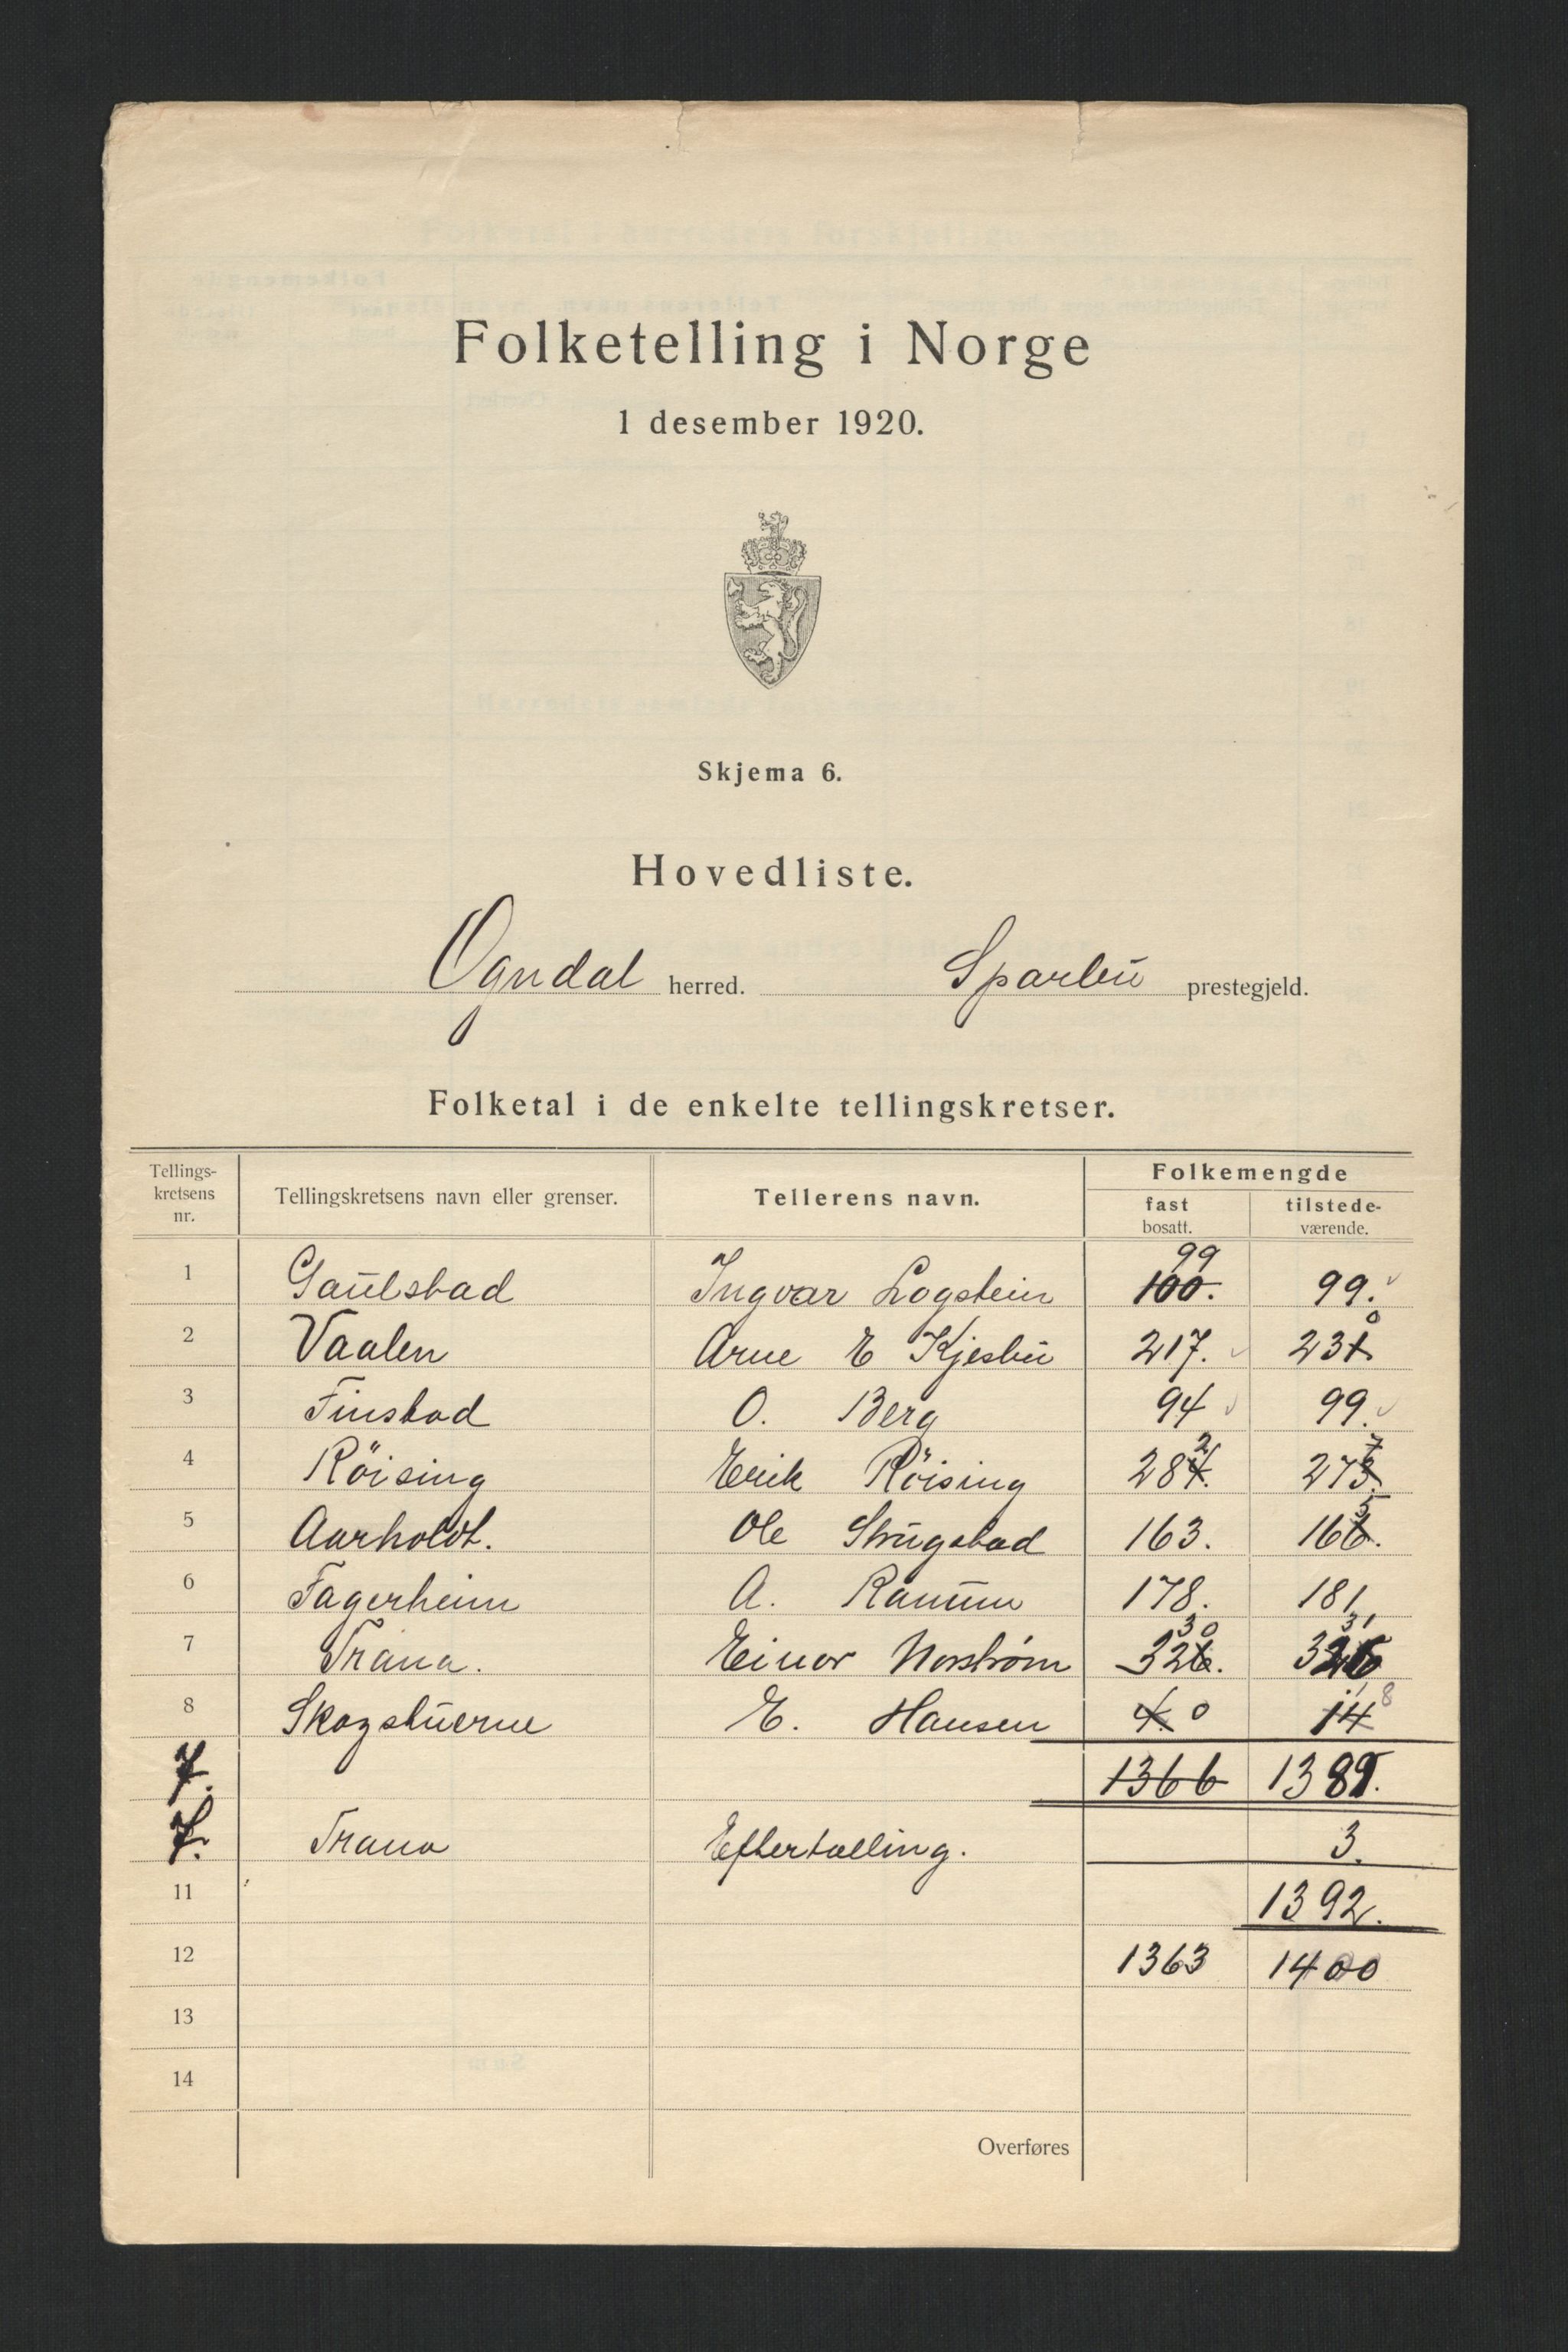 Folketelling i Norge
1 desember 1920.
Skjema 6.
Hovedliste.
Ogndal herred. Sparbu prestegjeld.
Folketal i de enkelte tellingskretser.
Tellings-kretsens nr. Tellingskretsens navn eller grenser. Tellerens navn. Folkemengde
fast bosatt. tilstede-værende.
99
1 Gaulstad Ingvar Logstein 100. 99.
0
2 Vaalen Arne E Kjesbu 217. 231
3 Finstad O. Berg 94 99.
2 7
4 Röising Erik Röising 284. 273.
5
5 Aarholdt. Ole Strugstad 163. 166.
6 Fagerheim A. Ranum 178. 181
30 31
7 Trana. Einar Norstrøm 326. 326
8 Skogstuerne E. Hansen 4. 0 14 8
7. 1366 1389.
7. Trana Eftertælling. 3.
11 1392.
12 1363 1400
13
14
Overføres